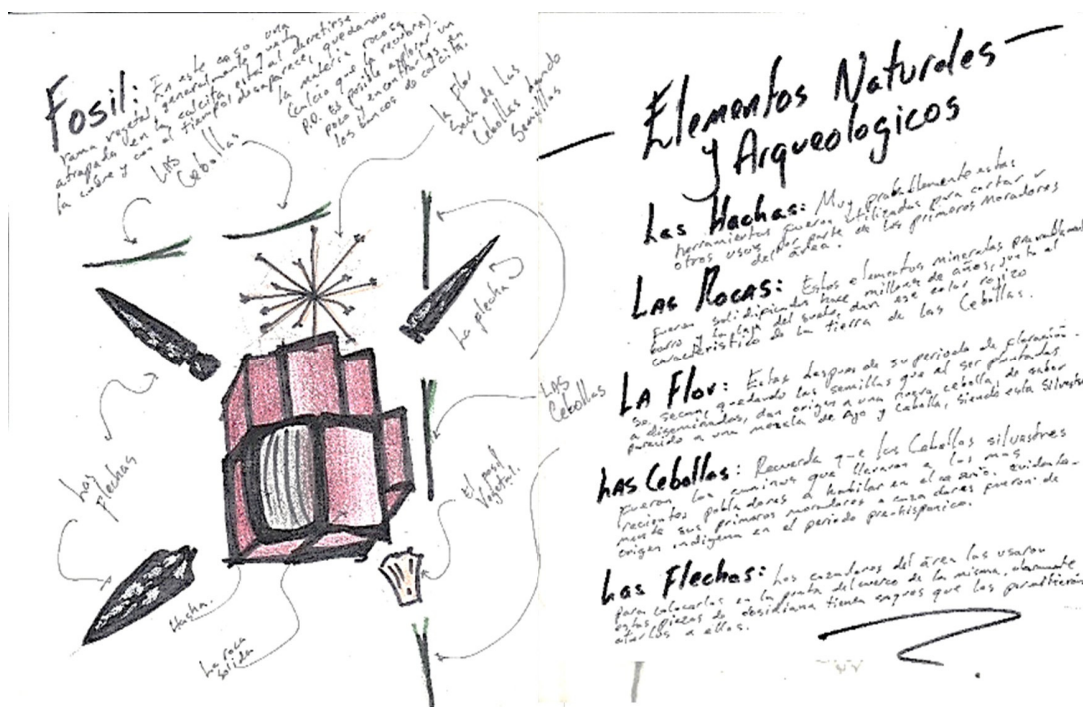 Fosil: En este caso una
rama vegetal generalmente queda
atrapada en la calcita, esta al derretirse
la cubre y con el tiempo desaparece, quedando
la materia rocosa
(calcio que la recubra).
P.D. Es posible explorar un
poco y encontrarlas en
los bancos de calcita.
LAS
Cebollas
La Flor
Seca de las
Cebollas dando
Semillas
La flecha
LAS
Cebollas
Las
Flechas
El fosil
Vegetal.
Hacha.
La roca
solida
Elementos Naturales
y Arqueologicos
Las Hachas: Muy probablemente estas
herramientas fueron utilizadas para cortar y
otros usos por parte de los primeros moradores
del área.
LAS ROCAS: Estos elementos minerales
fueron solidificados hace millones de años, junto al
barro y la laja del suelo, dan ese color rojizo
caracteristico de la tierra de las Cebollas.
LA Flor: Estas despues de su periodo de
se secan, quedando las semillas que al ser plantadas
o diseminadas, dan origen a una nueva cebolla, de sabor
parecido a una mezcla de Ajo y Cebolla, siendo esta Silvestre
LAS Cebollas: Recuerda que las Cebollas silvestres
fueron los caminos que llevaron a los mas
recientes pobladores a habitar en el
mente sus primeros moradores o cazadores fueron de
origen indigena en el periodo pre-hispanico.
Las Flechas: Los cazadores del área las usaron
para colocarlas en la punta del de la misma,
estas piezas de obsidiana tienen que los
atarlas a ellas.